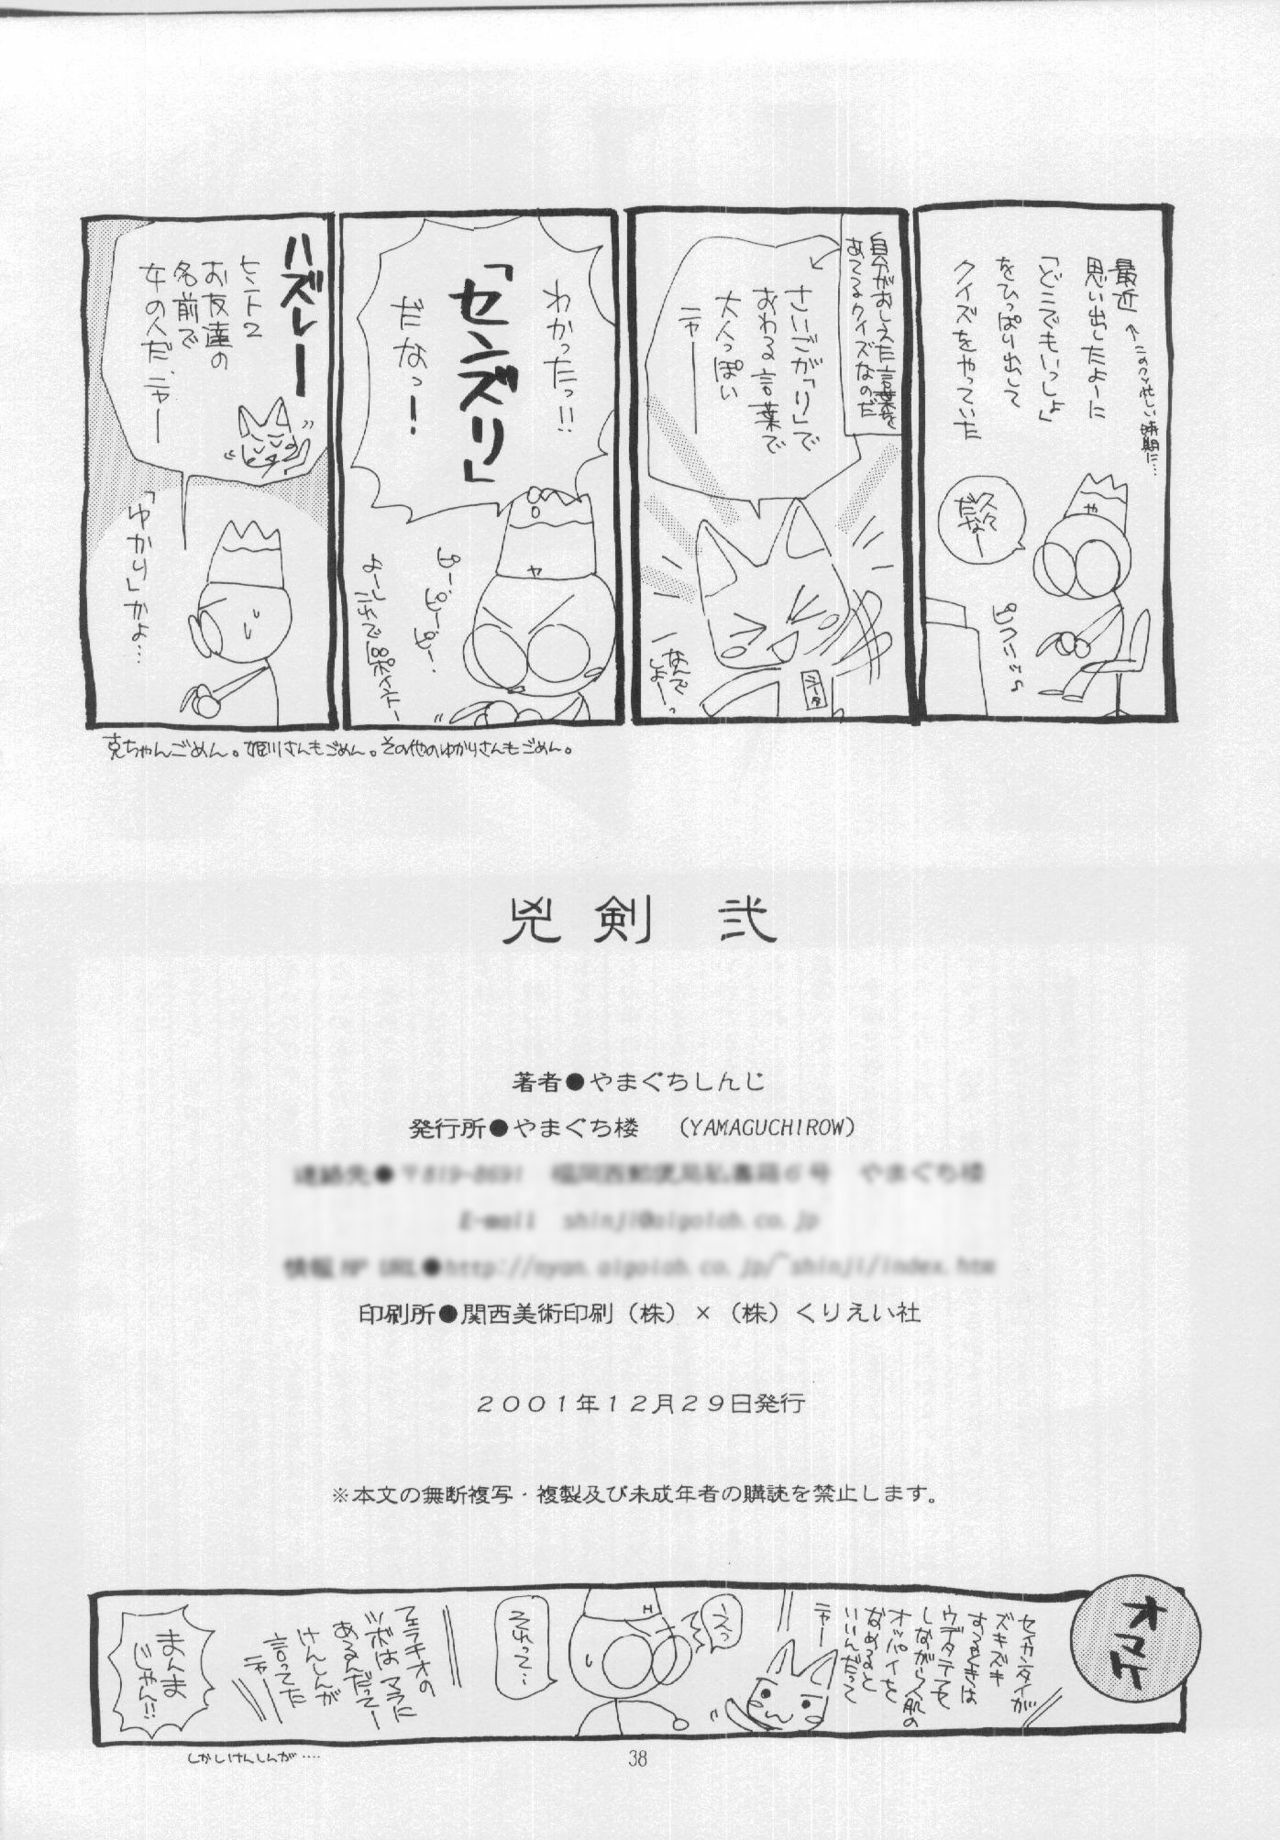 最近
←このクソ忙しい時期に…
思い出したよーに
「どこでもいっしょ」
をひっぱり出して
クイズをやっていた
久々
だなー
や
自分がおしえた言葉を
あてるクイズなのだ
さいごが「り」で
おわる言葉で
大人っぽい
ニャー
なんで
しょー
わかったっ!!
「センズリ」
だなっ!
ヤ
ハズレー
ヒント2
お友達の
名前で
女の人だ、ニャー
「ゆかり」かよ…
克ちゃんごめん。姫川さんもごめん。その他のゆかりさんもごめん。
兇剣 弐
著者●やまぐちしんじ
発行所●やまぐち楼 （YAMAGUCHIROW）
印刷所●関西美術印刷（株）×（株）くりえい社
２００１年１２月２９日発行
※本文の無断複写・複製及び未成年者の購読を禁止します。
オマケ
セイカンタイが
ズキズキ
おっきは
ウデタテを
しながら人肌の
オッパイを
なめると
いいんだって
ニャー
えっ
それって…
フェラチオの
ツボはマラに
あるんだってー
けんしんが
言ってた
ニャー
まんま
じゃん!!
しかしけんしんが‥‥
38